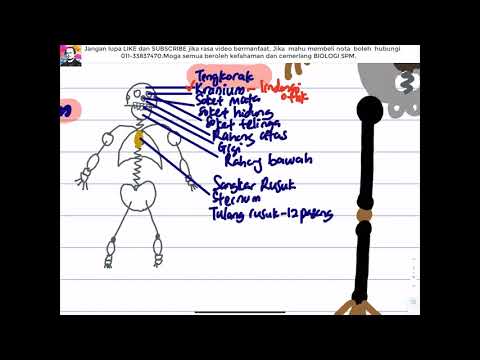 Jangan lupa LIKE dan SUBSCRIBE jika rasa video bermanfaat. Jika mahu membeli nota boleh hubungi
011-33837470.Moga semua beroleh kefahaman dan cemerlang BIOLOGI SPM.
Tengkorak
Kranium - lindungi otak
Soket mata
Soket hidung
Soket telinga
Rahang atas
Gigi
Rahang bawah
Sangkar Rusuk
Sternum
Tulang rusuk-12 pasang